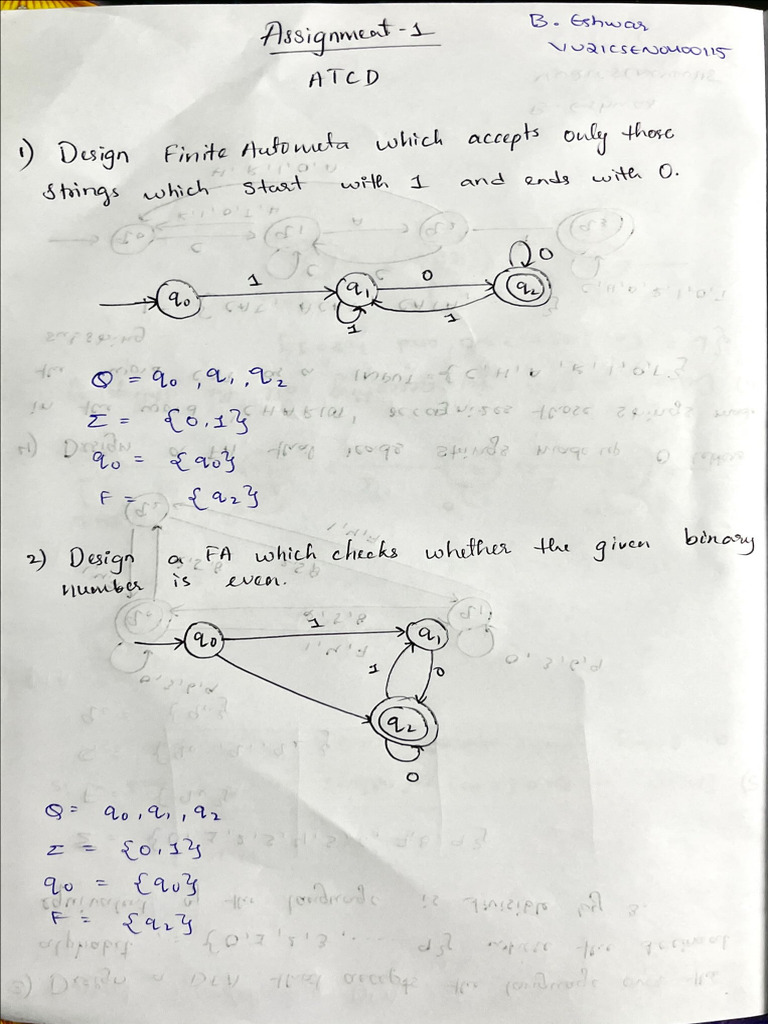 Assignment-1
B. Eshwar
VU21CSEN0400115
ATCD
1) Design Finite Autometa which accepts only those
strings which start with 1 and ends with 0.
q0 1 q1 0 q2 0
1 1
Q = q0, q1, q2
Σ = {0,1}
q0 = {q0}
F = {q2}
2) Design a FA which checks whether the given binary
number is even.
q0 1 q1
1 0
q2
0
Q = q0, q1, q2
Σ = {0,1}
q0 = {q0}
F = {q2}